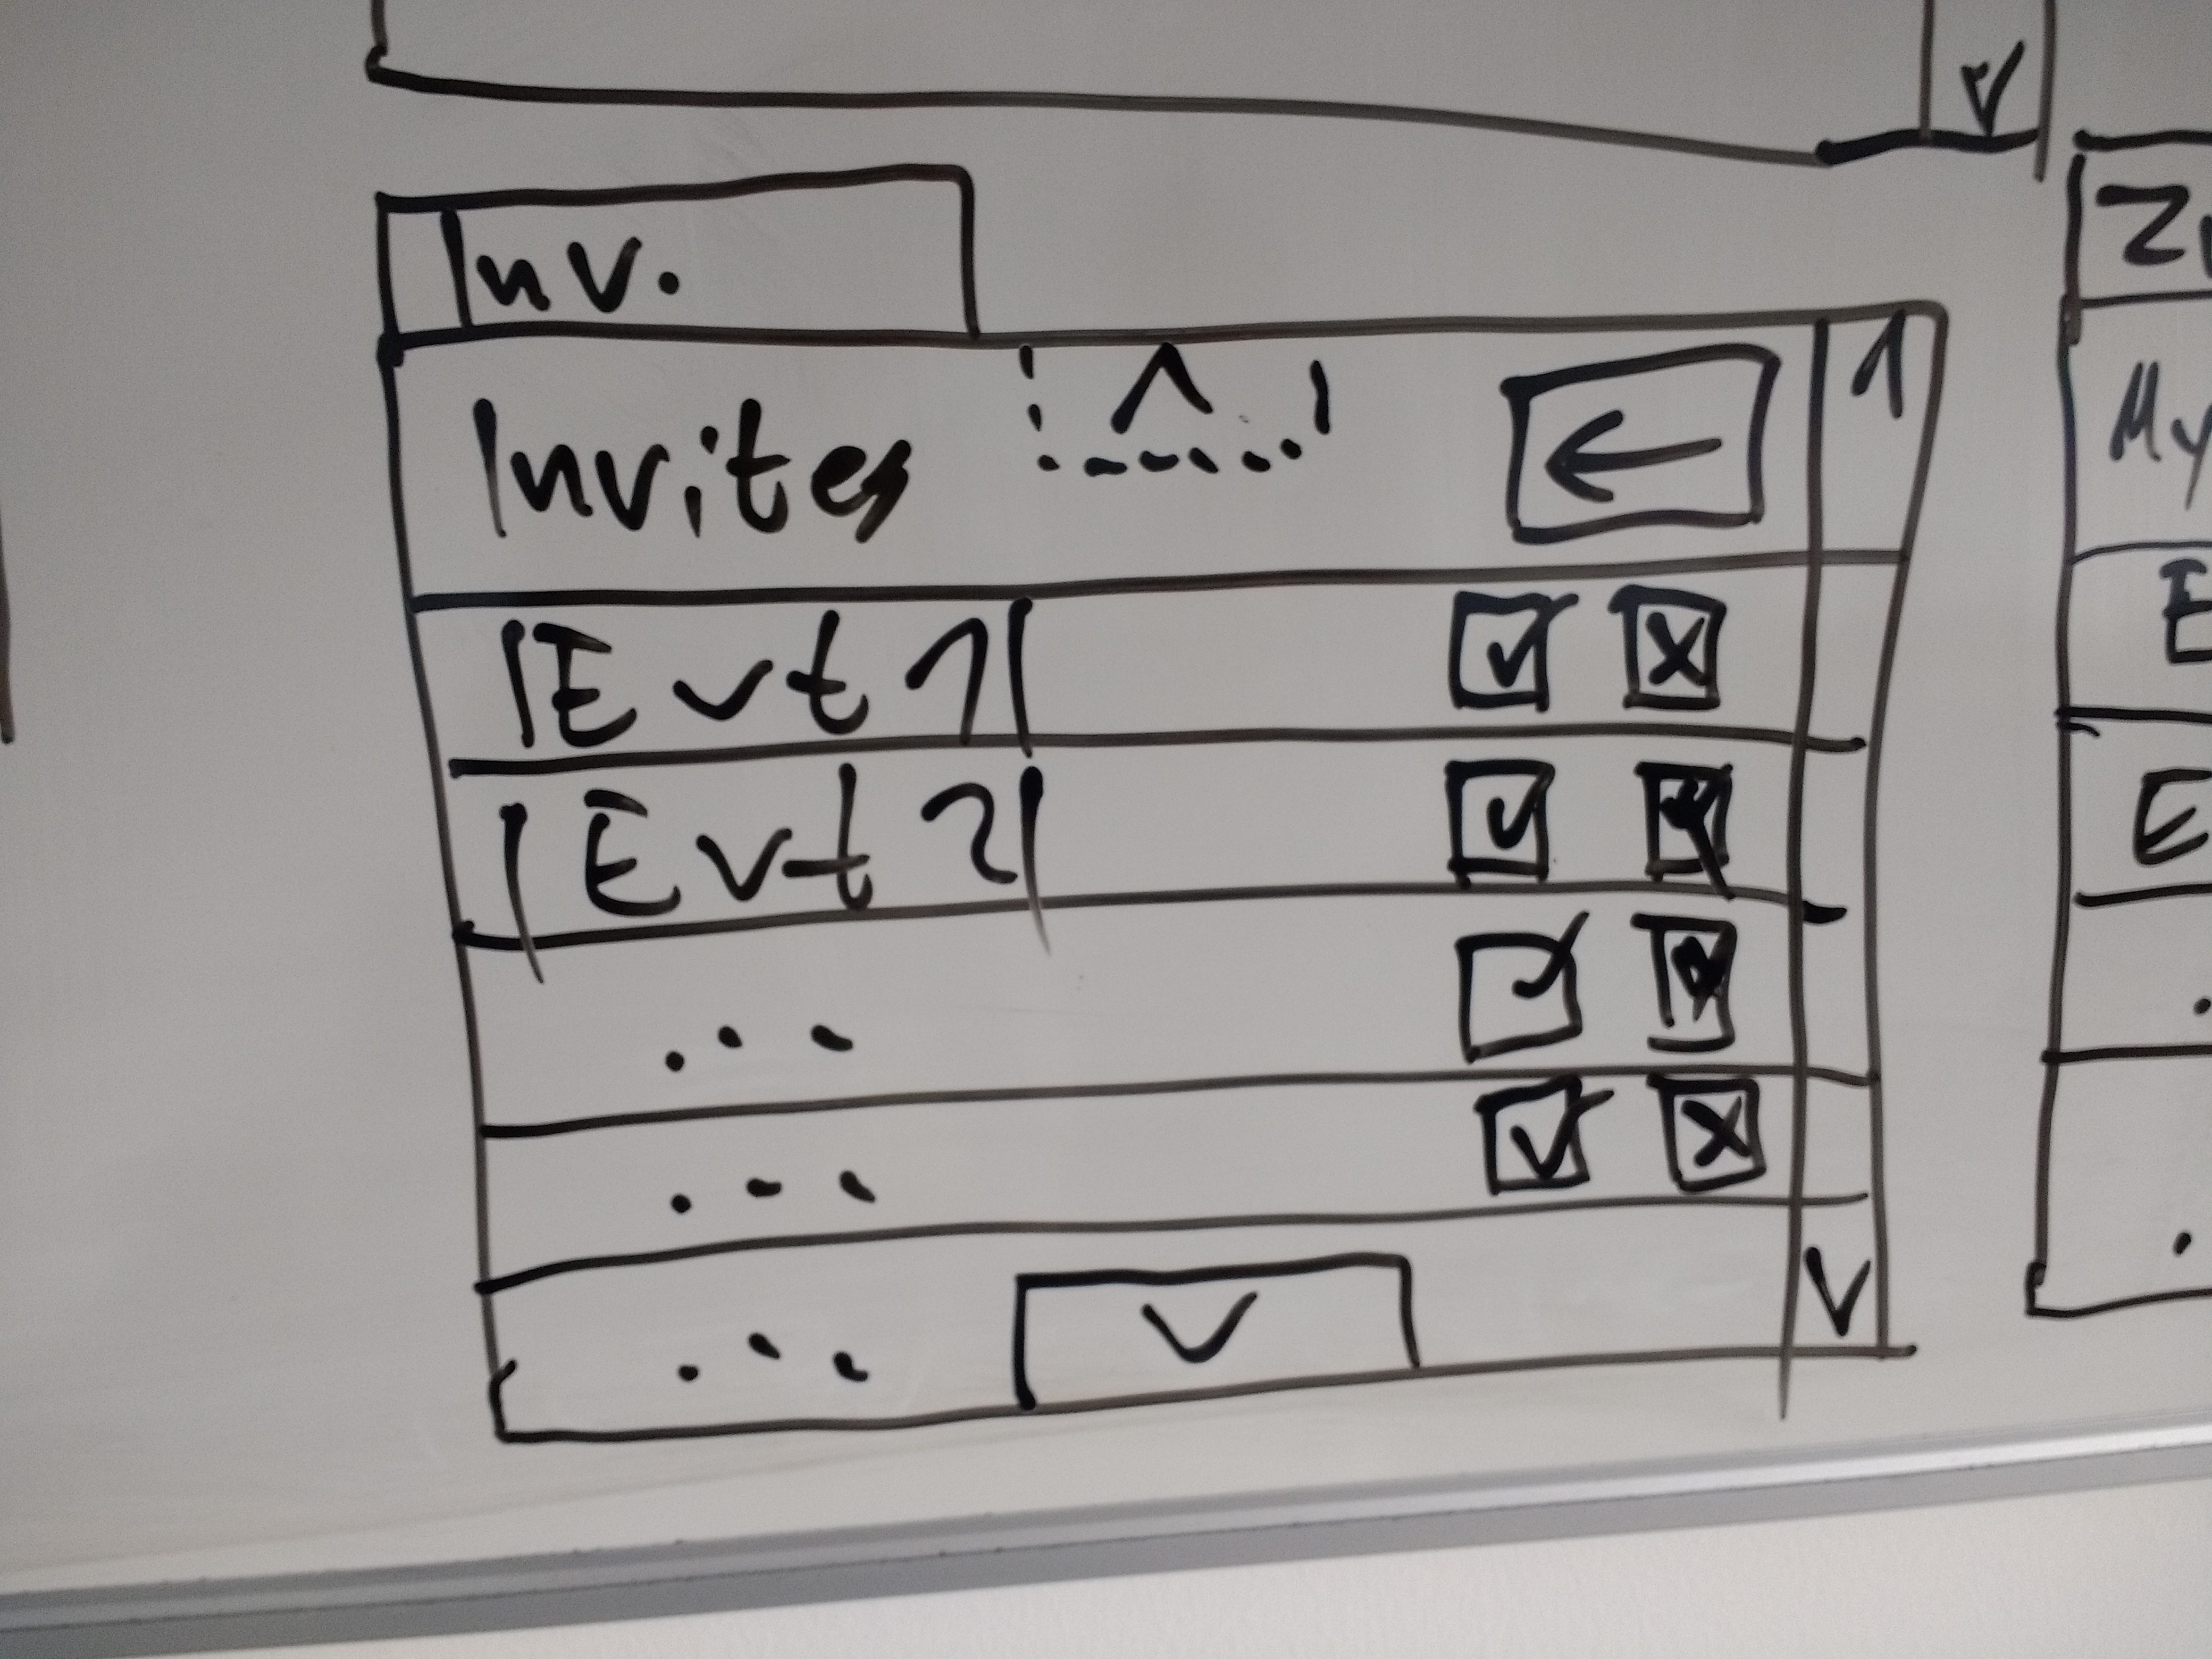 Inv.
Invites
Evt 1
Evt 2
...
...
...
My
E
E